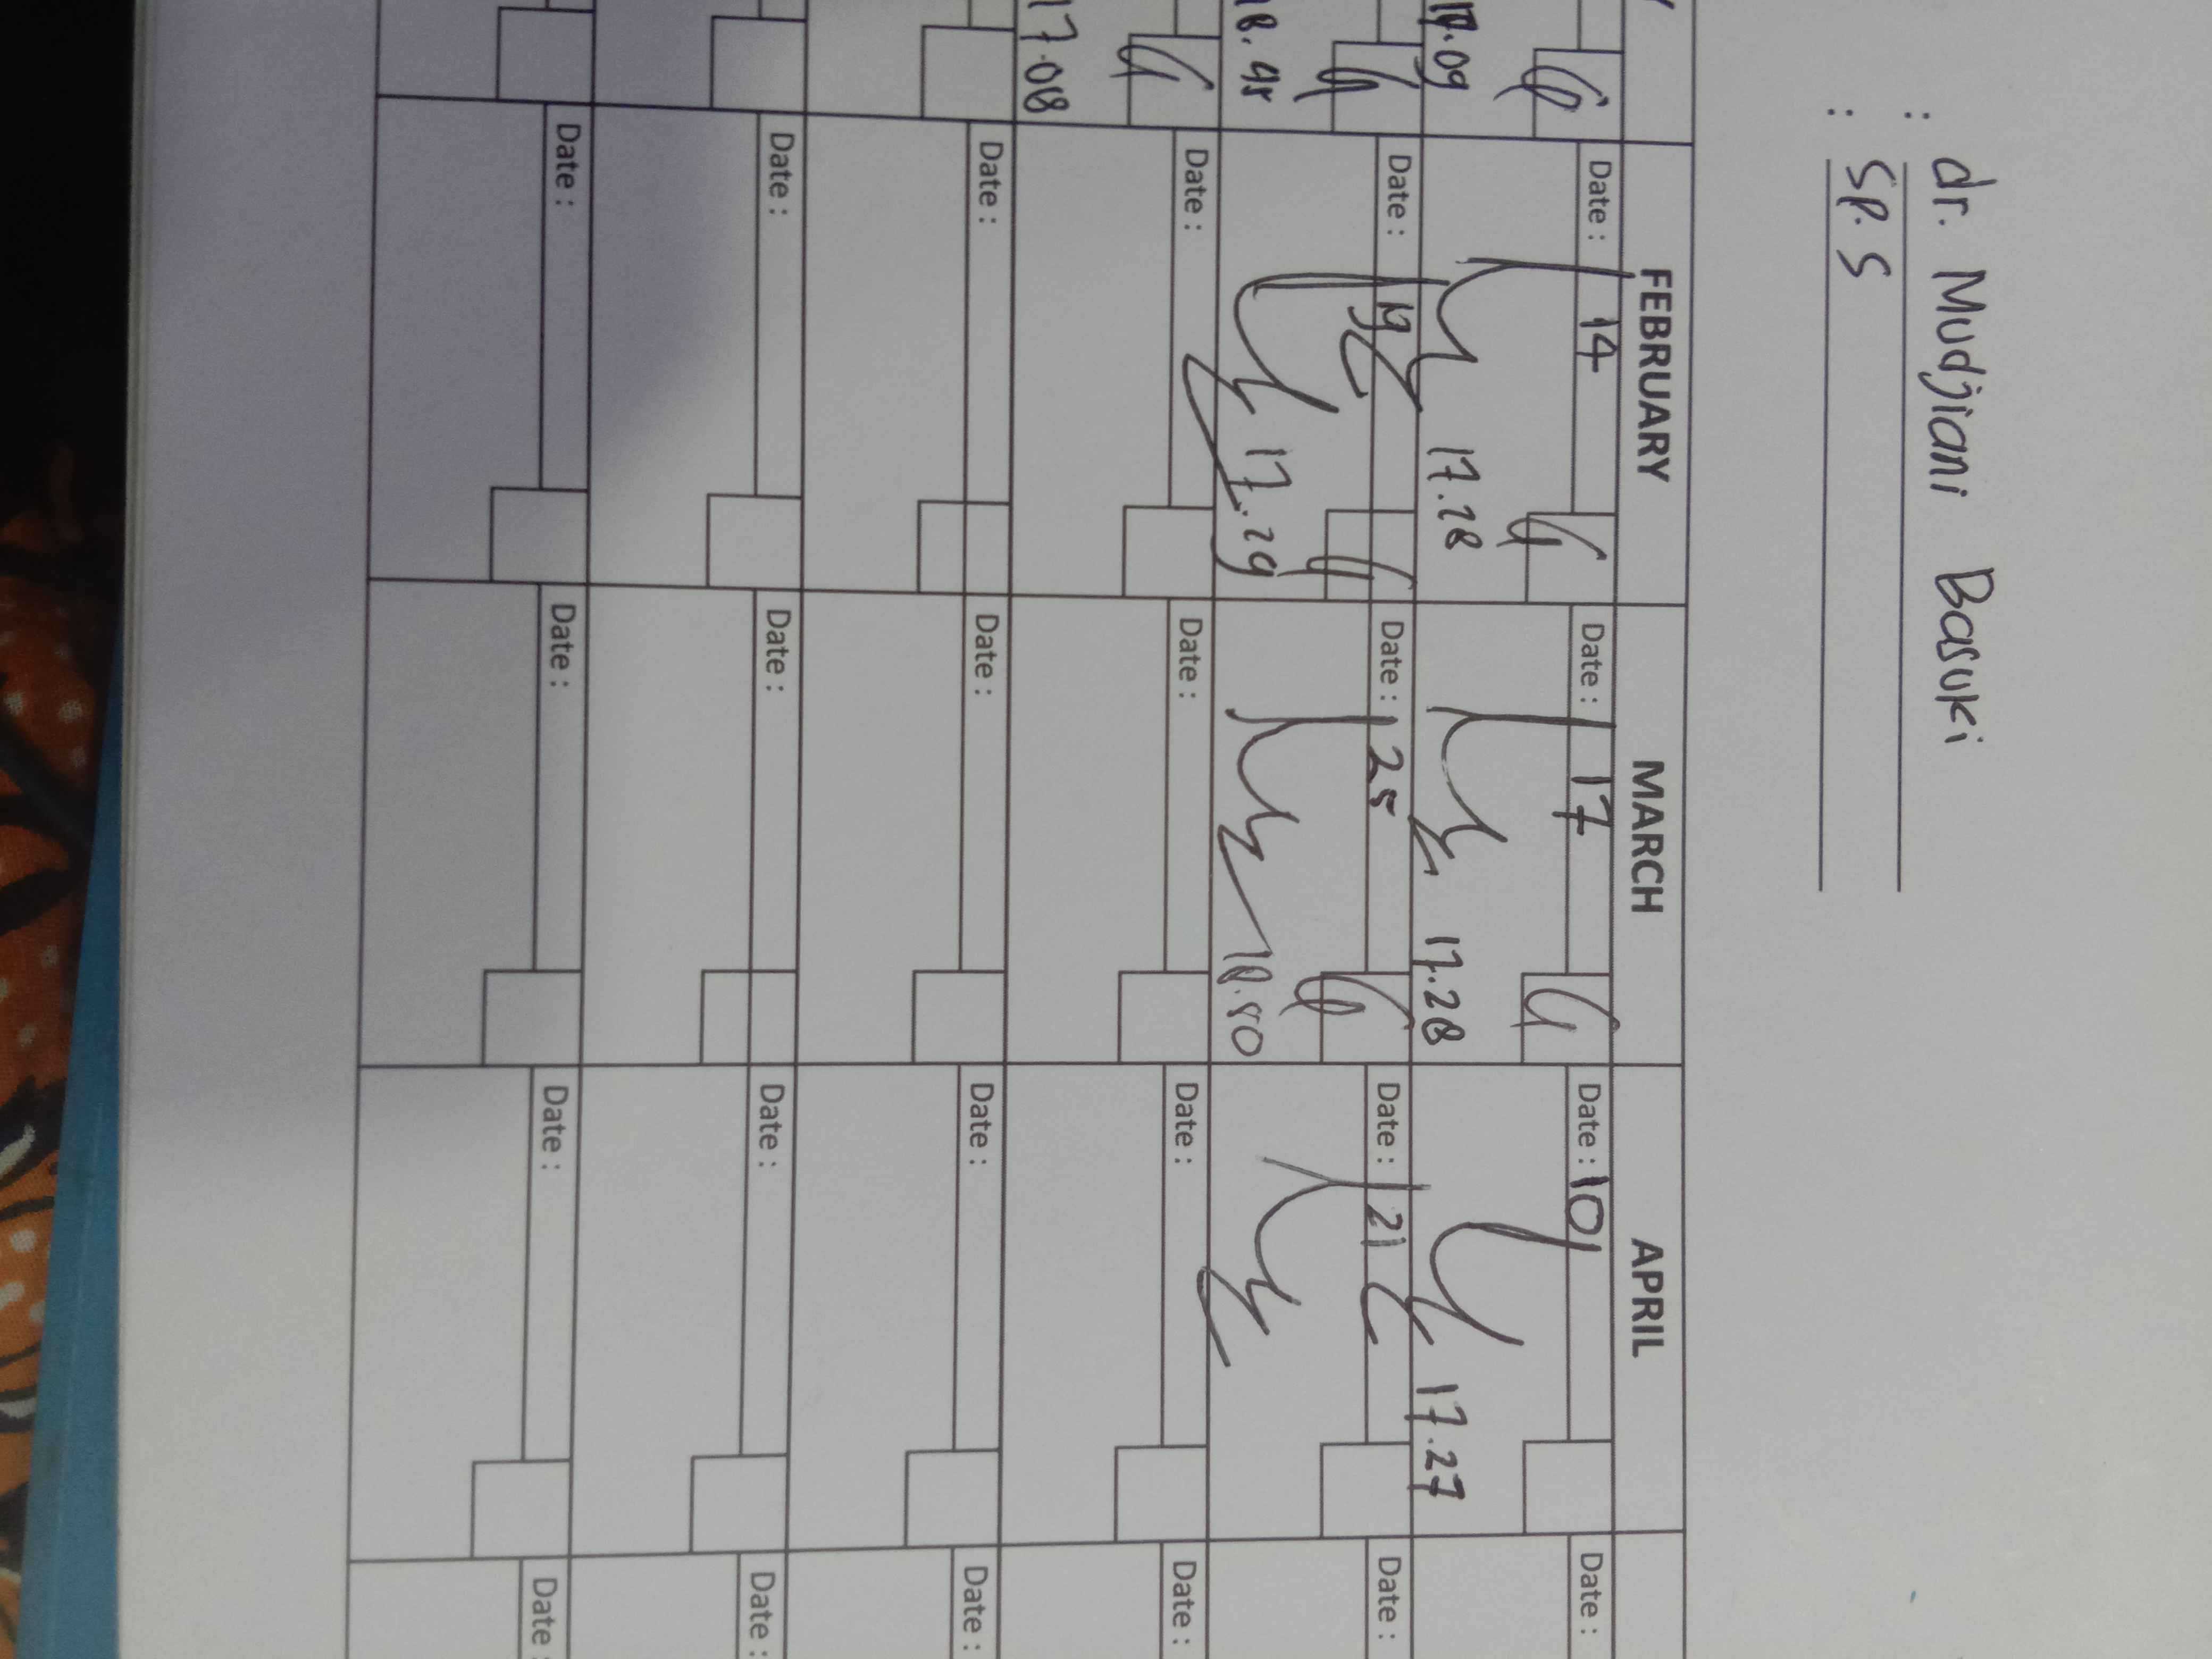 : dr. Mudjiani Basuki
: SP. S
FEBRUARY MARCH APRIL
Date : 14 Date : 17 Date : 10 Date :
17.09 17.28 17.28 17.27
Date : 19 Date : 25 Date : 21 Date :
17.29
Date : Date : Date : Date :
17.08
Date : Date : Date : Date :
Date : Date : Date : Date :
Date : Date : Date : Date :